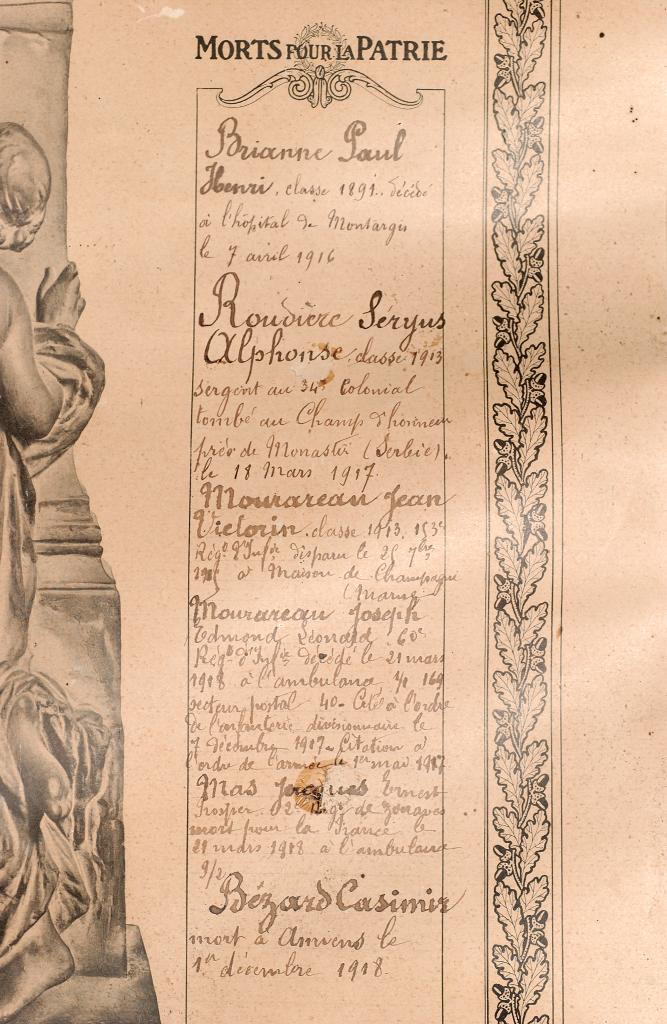 MORTS POUR LA PATRIE
Brianne Paul
Henri, classe 1891. décédé
à l'hôpital de Montargis
le 7 avril 1916
Roudière Séryus
Alphonse, classe 1913
sergent au 34e Colonial
tombé au Champ d'honneur
près de Monastir (Serbie).
le 18 Mars 1917.
Mourareau Jean
Victorin, classe 1913, 153e
Régt d'Infie disparu le 25 7bre
1915 à Maison de Champagne
(Marne)
Mourareau Joseph
Edmond Léonard 60e
Régt d'Infie décédé le 21 mars
1918 à l'ambulance 3/1 169
secteur postal 40 - Cité à l'ordre
de l'infanterie divisionnaire le
7 décembre 1917 - Citation à
l'ordre de l'armée le 1er mai 1917
Mas Jacques Ernest
Prosper. 2e Régt de zouaves
mort pour la France le
21 mars 1918 à l'ambulance
9/2
Bézard Casimir
mort à Amiens le
1er décembre 1918.